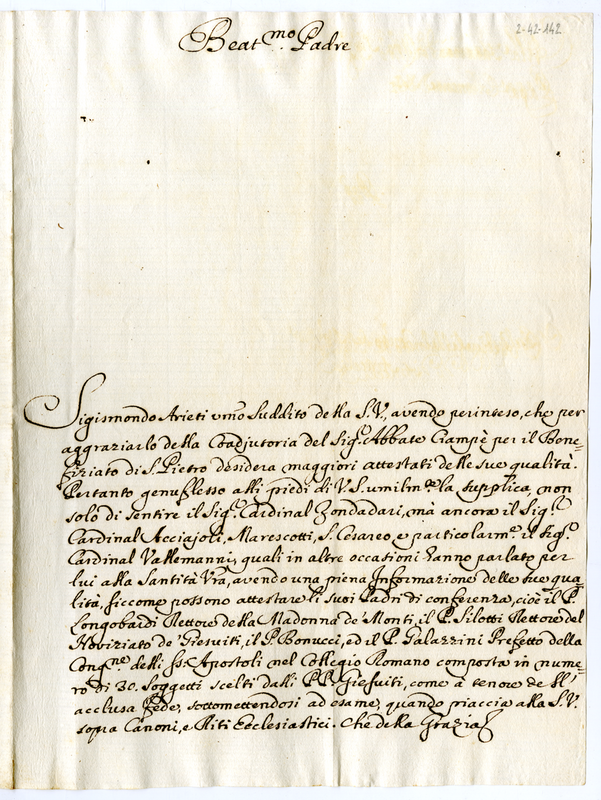 2-42-142
Beat.mo Padre
Sigismondo Arieti vmo Suddito della S.V., avendo perinteso, che per
aggraziarlo della Coadjutoria del Sig.e Abbate Ciampè per il Bene=
fiziato di S. Pietro desidera maggiori attestati delle sue qualità.
Pertanto genuflesso alli piedi di V.S. umilm.te la supplica, non
solo di sentire il Sig.e Cardinal Zondadari, mà ancora il Sig.e
Cardinal Acciajoli, Marescotti, S. Cesareo, e particolarm.e il Sig.e
Cardinal Vallemanni, quali in altre occasioni hanno parlato per
lui alla Santità Vra, avendo una piena Informazione delle sue qua=
lità, siccome possono attestare li suoi Padri di conferenza, cioè il P.
Longobardi Rettore della Madonna de' Monti, il P. Silotti Rettore del
Noviziato de' Giesuiti, il P. Bonucci, ed il P. Galazzini Prefetto della
Cong.ne delli Ss. Apostoli nel Collegio Romano composta in nume=
ro di 30. Soggetti scelti dalli PP. Giesuiti, come à tenore dell'
acclusa fede, sottomettendosi ad esame, quando piaccia alla S.V.
sopra Canoni, e Riti Ecclesiastici. Che della Grazia